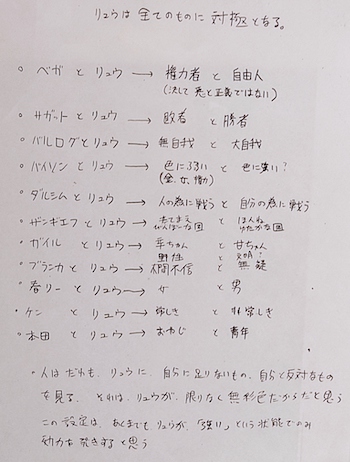 リュウは全てのものに対極となる。
。ベガとリュウ → 権力者と自由人
(決して悪と正義ではない)
。サガットとリュウ → 敗者と勝者
。バルログとリュウ → 無自我と大自我
。バイソンとリュウ → 色に弱いと色に強い?
(金、女、権力)
。ダルシムとリュウ → 人の為に戦うと自分の為に戦う
。ザンギエフとリュウ → たてまえと ほんね
びんぼーな国 ゆたかな国
。ガイルとリュウ → 辛ちゃんと甘ちゃん
野性 文明?
。ブランカとリュウ → 人間不信と無疑
。春リーとリュウ → 女と男
。ケンとリュウ → 常しきと非常しき
。本田とリュウ → おやじと青年
。人はだれも、リュウに、自分に足りないもの、自分と反対なもの
を見る。それは、リュウが、限りなく無彩色だからだと思う
この設定は、あくまでもリュウが、「強い」という状態でのみ
効力を発きすると思う